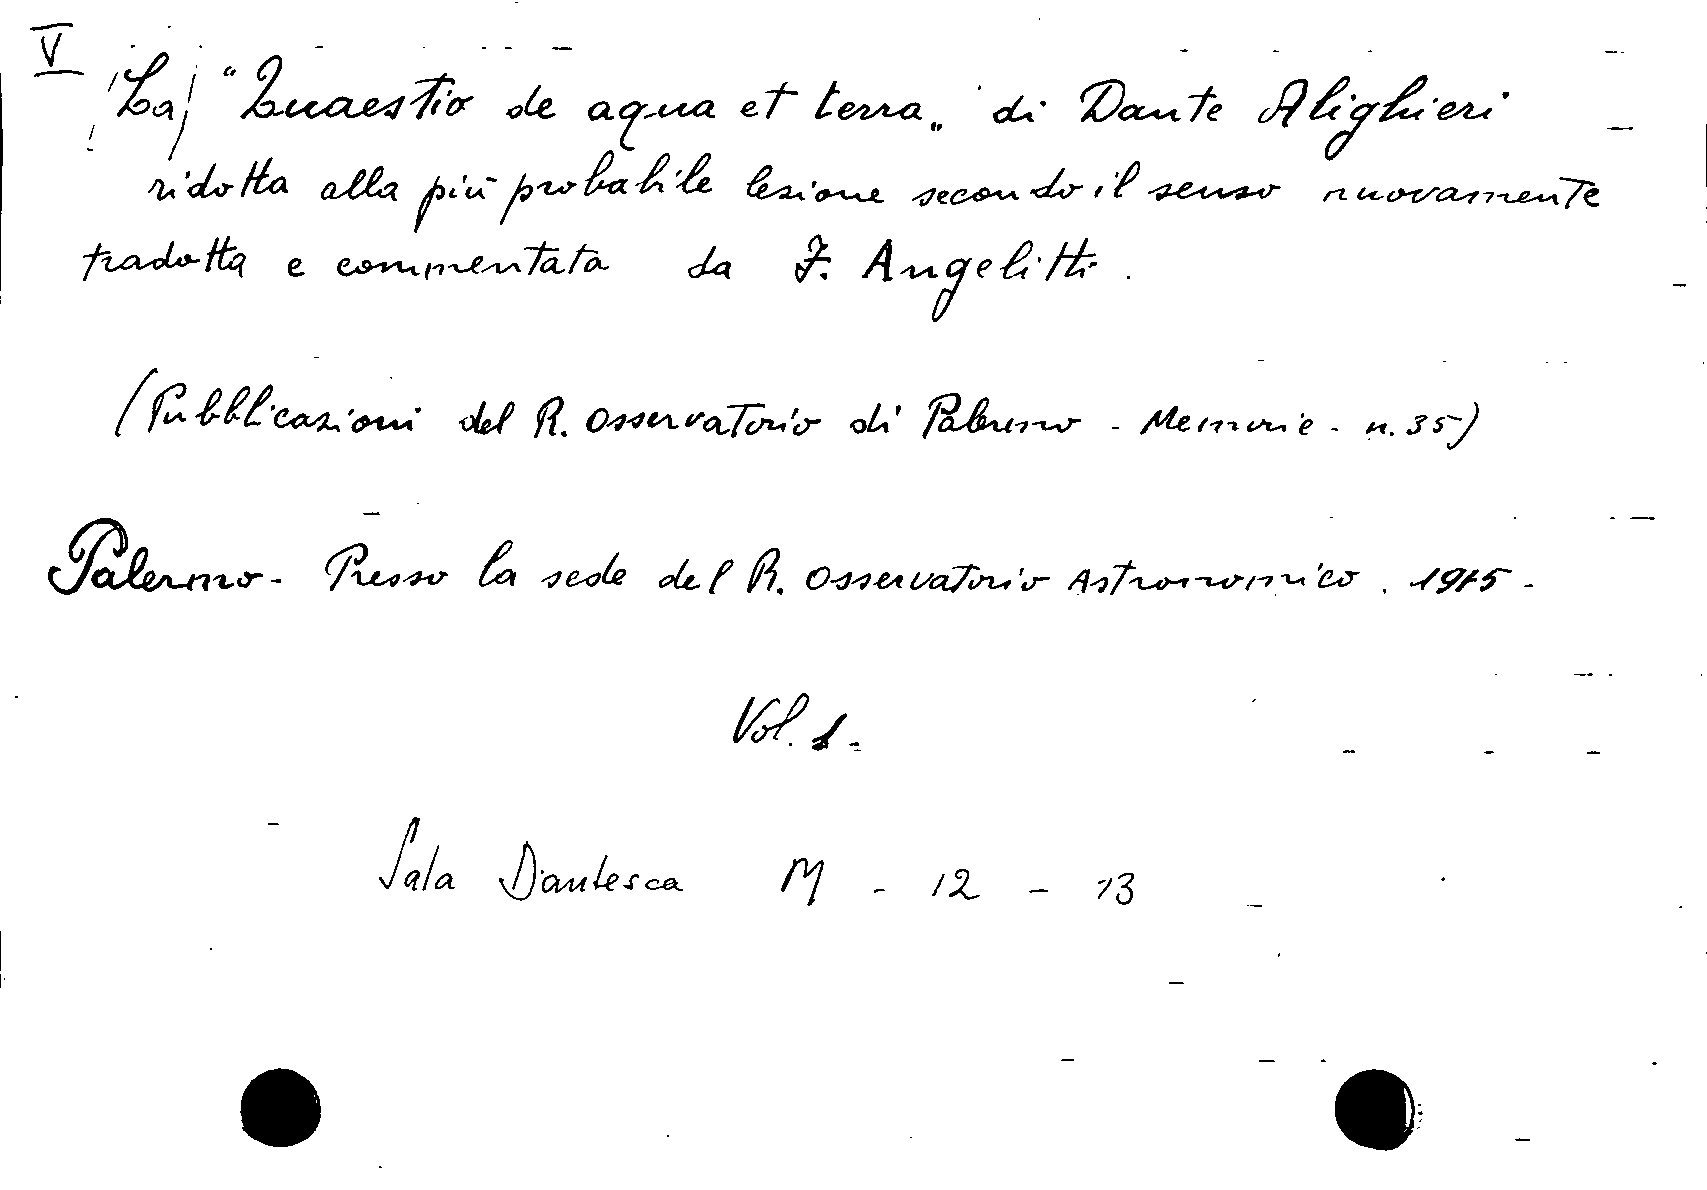 V
/La/ "Quaestio de aqua et terra„ di Dante Alighieri
ridotta alla più probabile lezione secondo il senso nuovamente
tradotta e commentata da F. Angelitti.
(Pubblicazioni del R. Osservatorio di Palermo - Memorie - n. 35)
Palermo - Presso la sede del R. Osservatorio Astronomico. 1915 -
Vol. 1 -
Sala Dantesca M - 12 - 13